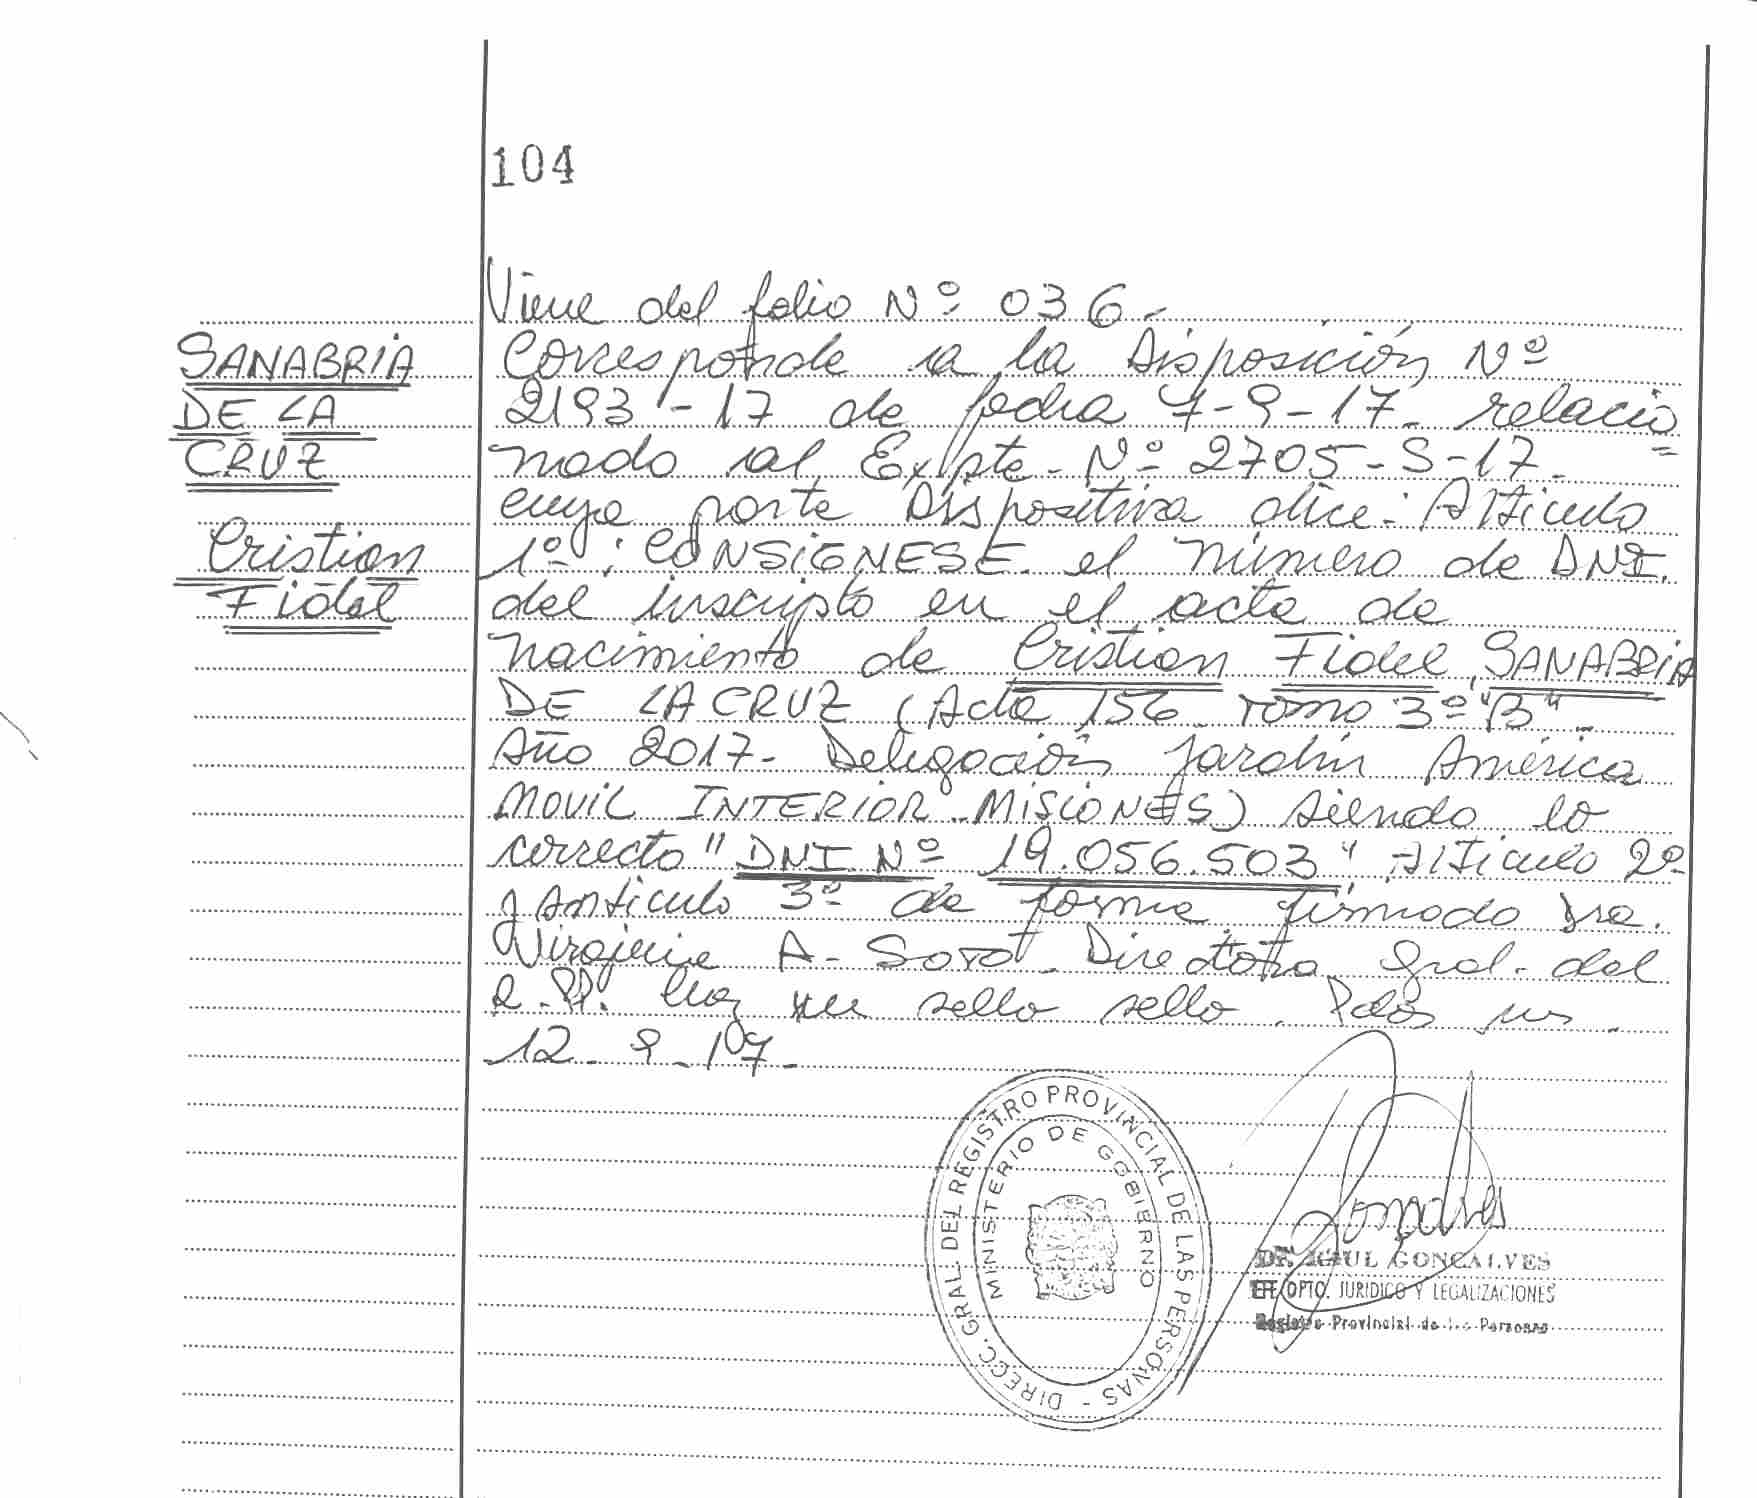 104
Viene del folio Nº 036.-
SANABRIA
DE LA
CRUZ
Cristian
Fidel
Corresponde a la Disposición Nº
2193-17 de fecha 7-9-17. relacio
nado al Expte. Nº 2705-S-17.
cuya parte Dispositiva dice: Artículo
1º: CONSIGNESE el número de DNI.
del inscripto en el acta de
nacimiento de Cristian Fidel SANABRIA
DE LA CRUZ (Acta 156 Tomo 3º "B".
Año 2017- Delegación Jardín América
MOVIL INTERIOR MISIONES) siendo lo
correcto "DNI Nº 19.056.503" Artículo 2º
y Artículo 3º de forma firmado Dra.
Virginia A. Soto. Directora Gral. del
R.PP. hay un sello sello. Pdas ms.
12-9-17.
DIRECC. GRAL. DEL REGISTRO PROVINCIAL DE LAS PERSONAS -
MINISTERIO DE GOBIERNO
DR. RAUL GONCALVES
DPTO. JURIDICO Y LEGALIZACIONES
Registro Provincial de las Personas